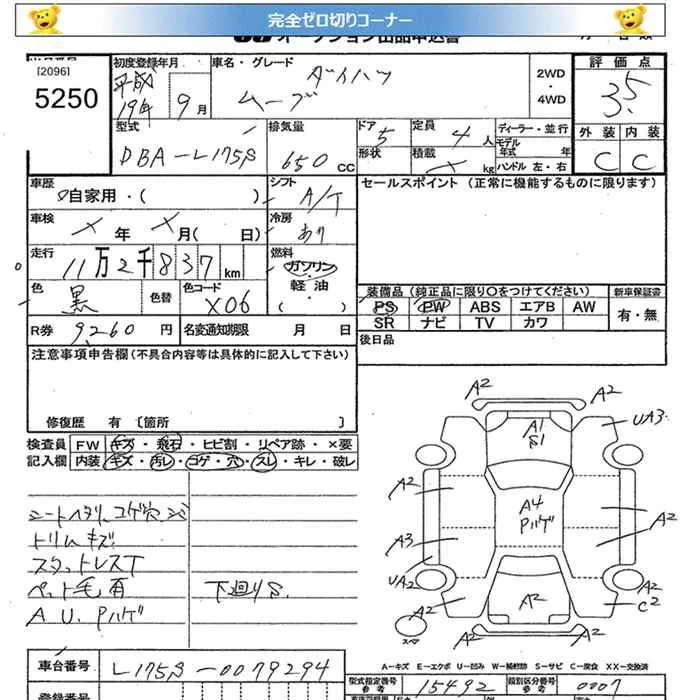 完全ゼロ切りコーナー
[2096]
5250
初度登録年月
平成
19年 9月
車名・グレード
ダイハツ
ムーブ
2WD
・
4WD
評価点
3.5
外装 内装
C C
型式
DBA-L175S
排気量
650 CC
ドア 5
形状
定員 4人
積載 kg
ディーラー・並行
モデル年式 年
ハンドル 左・右
車歴
自家用・( )
シフト
A/T
セールスポイント (正常に機能するものに限ります)
車検
× 年 × 月( 日)
冷房
あり
走行
11万2千837km
燃料
ガソリン
・
軽油
・
( )
色
黒
色替
色コード
X06
装備品(純正品に限り○をつけてください)
新車保証書
PS PW ABS エアB AW
有・無
SR ナビ TV カワ
R券 9,260円
名変通知期限 月 日
後日品
注意事項申告欄(不具合内容等は具体的に記入して下さい)
修復歴 有 [箇所 ]
検査員
記入欄
FW キズ・飛石・ヒビ割・リペア跡・×要
内装 キズ・汚レ・コゲ・穴・スレ・キレ・破レ
シートヘタリ コゲ穴
トリムキズ
スタットレスT
ペット毛有
A U. Pハゲ
下廻りS
A2
A1
S1
UA3
A2
A4
Pハゲ
A2
A3
UA2
A2
A2
A2
C2
A2
スペア
A-キズ E-エクボ U-凹み W-補修跡 S-サビ C-腐食 XX-交換済
車台番号
L175S-0079294
型式指定番号
参考
15492
類別区分番号
参考
0007
登録番号